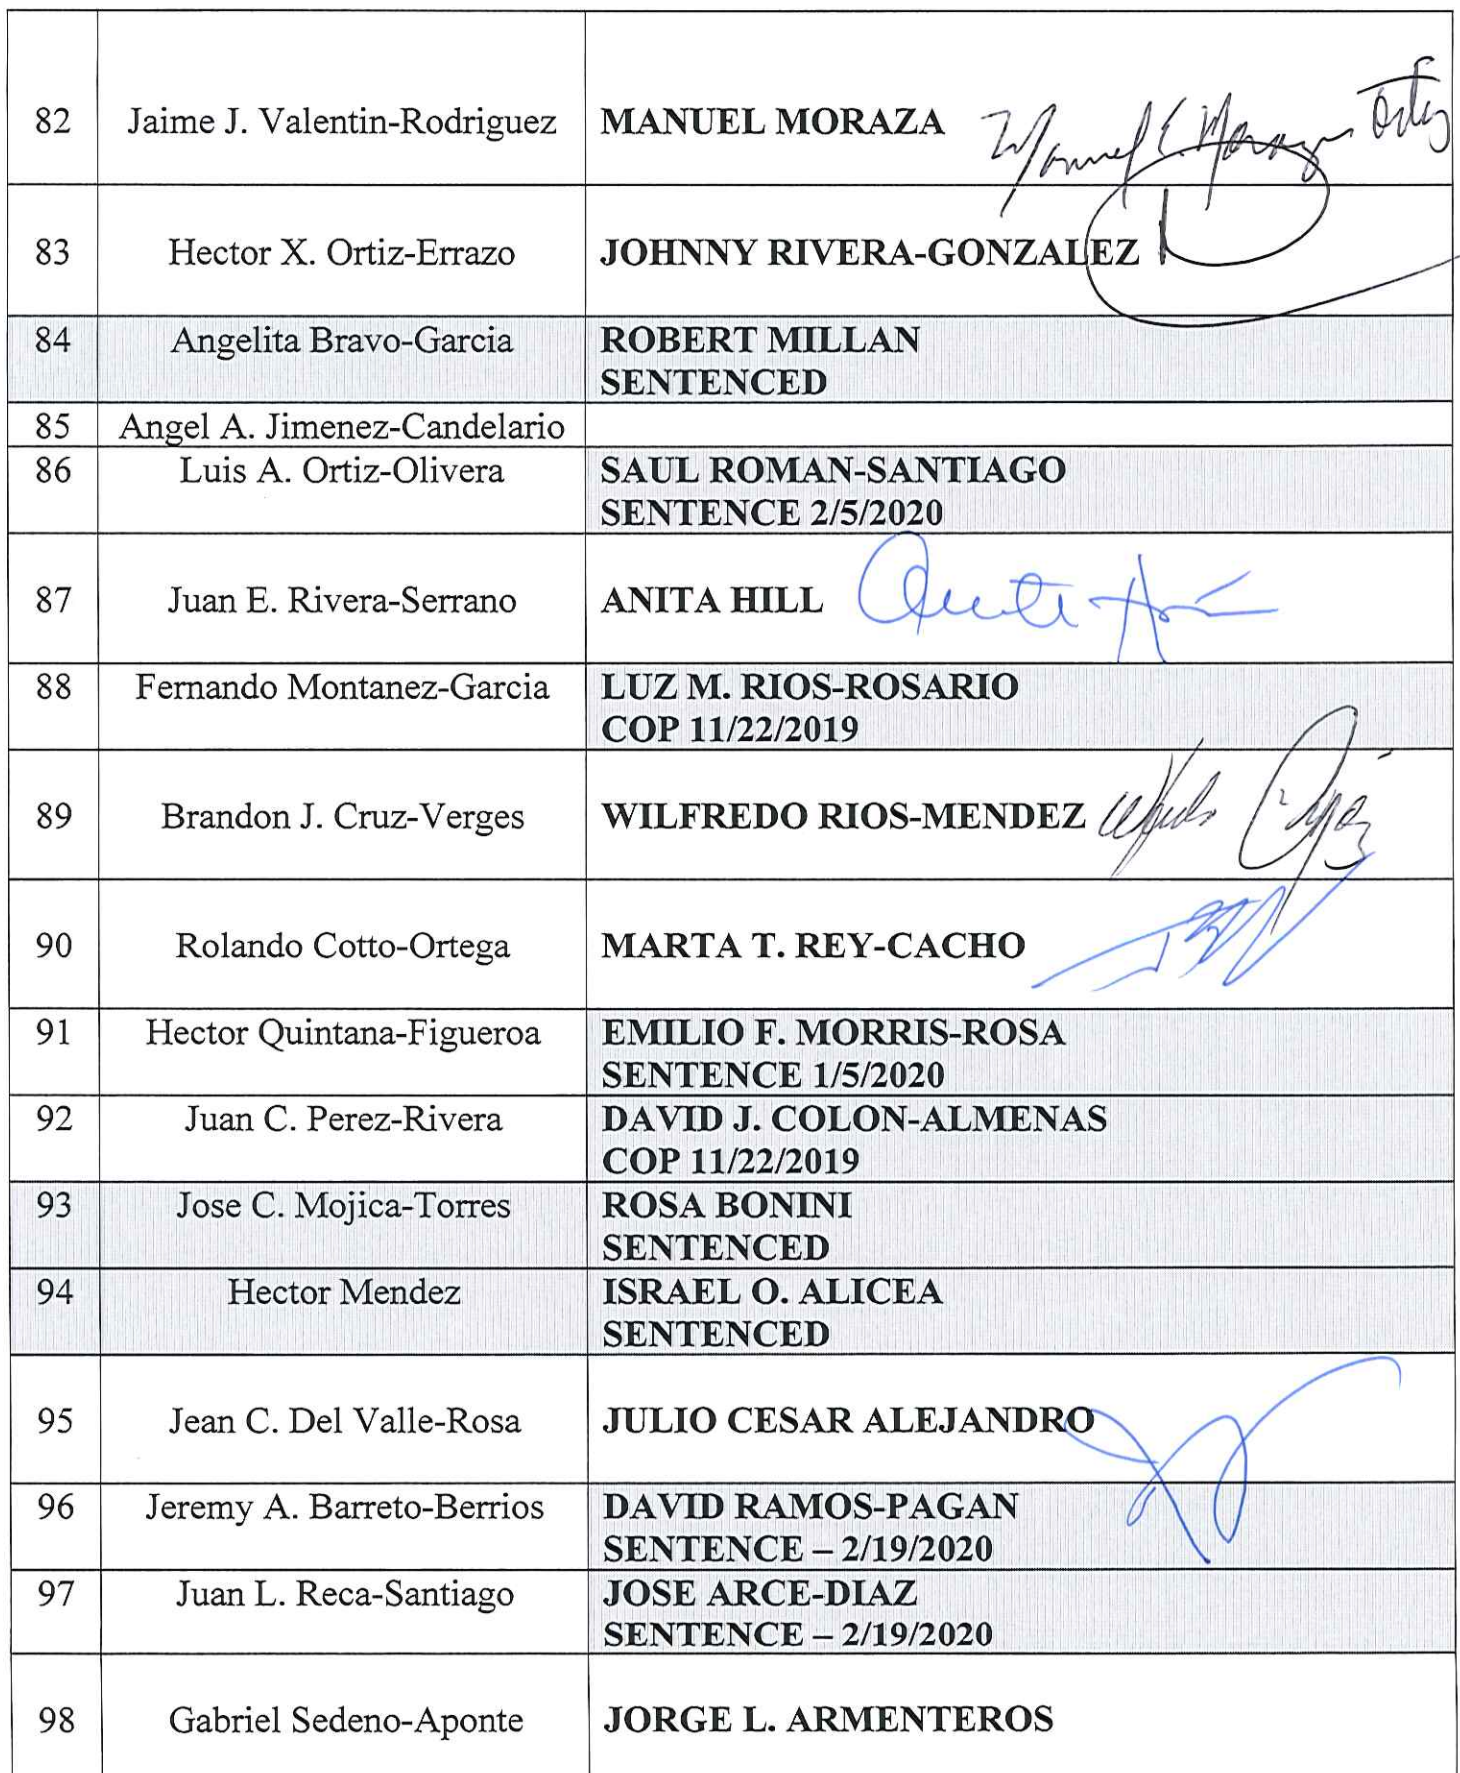 82 Jaime J. Valentin-Rodriguez MANUEL MORAZA Manuel E. Moraza Ortiz
83 Hector X. Ortiz-Errazo JOHNNY RIVERA-GONZALEZ
84 Angelita Bravo-Garcia ROBERT MILLAN
SENTENCED
85 Angel A. Jimenez-Candelario
86 Luis A. Ortiz-Olivera SAUL ROMAN-SANTIAGO
SENTENCE 2/5/2020
87 Juan E. Rivera-Serrano ANITA HILL
88 Fernando Montanez-Garcia LUZ M. RIOS-ROSARIO
COP 11/22/2019
89 Brandon J. Cruz-Verges WILFREDO RIOS-MENDEZ
90 Rolando Cotto-Ortega MARTA T. REY-CACHO
91 Hector Quintana-Figueroa EMILIO F. MORRIS-ROSA
SENTENCE 1/5/2020
92 Juan C. Perez-Rivera DAVID J. COLON-ALMENAS
COP 11/22/2019
93 Jose C. Mojica-Torres ROSA BONINI
SENTENCED
94 Hector Mendez ISRAEL O. ALICEA
SENTENCED
95 Jean C. Del Valle-Rosa JULIO CESAR ALEJANDRO
96 Jeremy A. Barreto-Berrios DAVID RAMOS-PAGAN
SENTENCE – 2/19/2020
97 Juan L. Reca-Santiago JOSE ARCE-DIAZ
SENTENCE – 2/19/2020
98 Gabriel Sedeno-Aponte JORGE L. ARMENTEROS